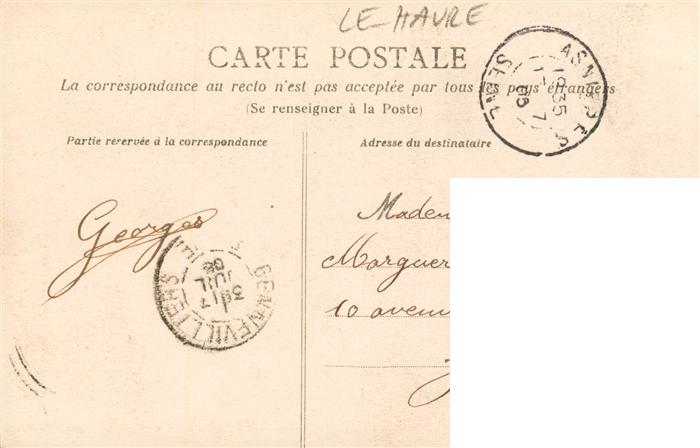 LE-HAVRE
CARTE POSTALE
La correspondance au recto n'est pas acceptée par tous les pays étrangers
(Se renseigner à la Poste)
Partie réservée à la correspondance
Adresse du destinataire
ASNIERES
SEINE
Georges
GENNEVILLIERS
JUIL
Madem
Marguer
10 aven